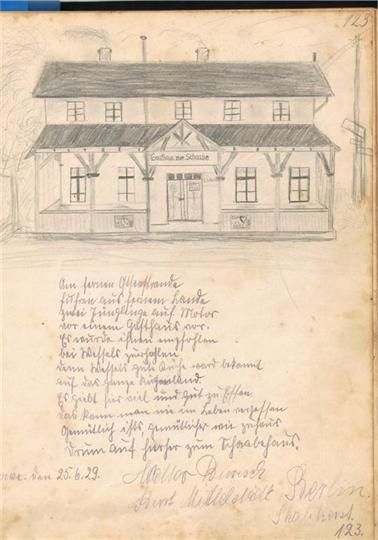 123
Gasthaus zur Schaabe
Am fernen Ostseestrande
fuhren aus fernem Lande
zwei Jünglinge auf Motor
vor einem Gasthaus vor.
Es wurde ihnen empfohlen
bei Wessels
denn Wessels gute Küche ward bekannt
auf das ganze Rügenland.
Es giebt hier viel und gut zu Essen
Das kann man nie im Leben vergessen
Gemütlich ists, gemütlicher wie zuhaus
Drum auf hierher zum Schaabehaus.
den 25.6.29.
Kurt Mittelstädt, Berlin.
123.